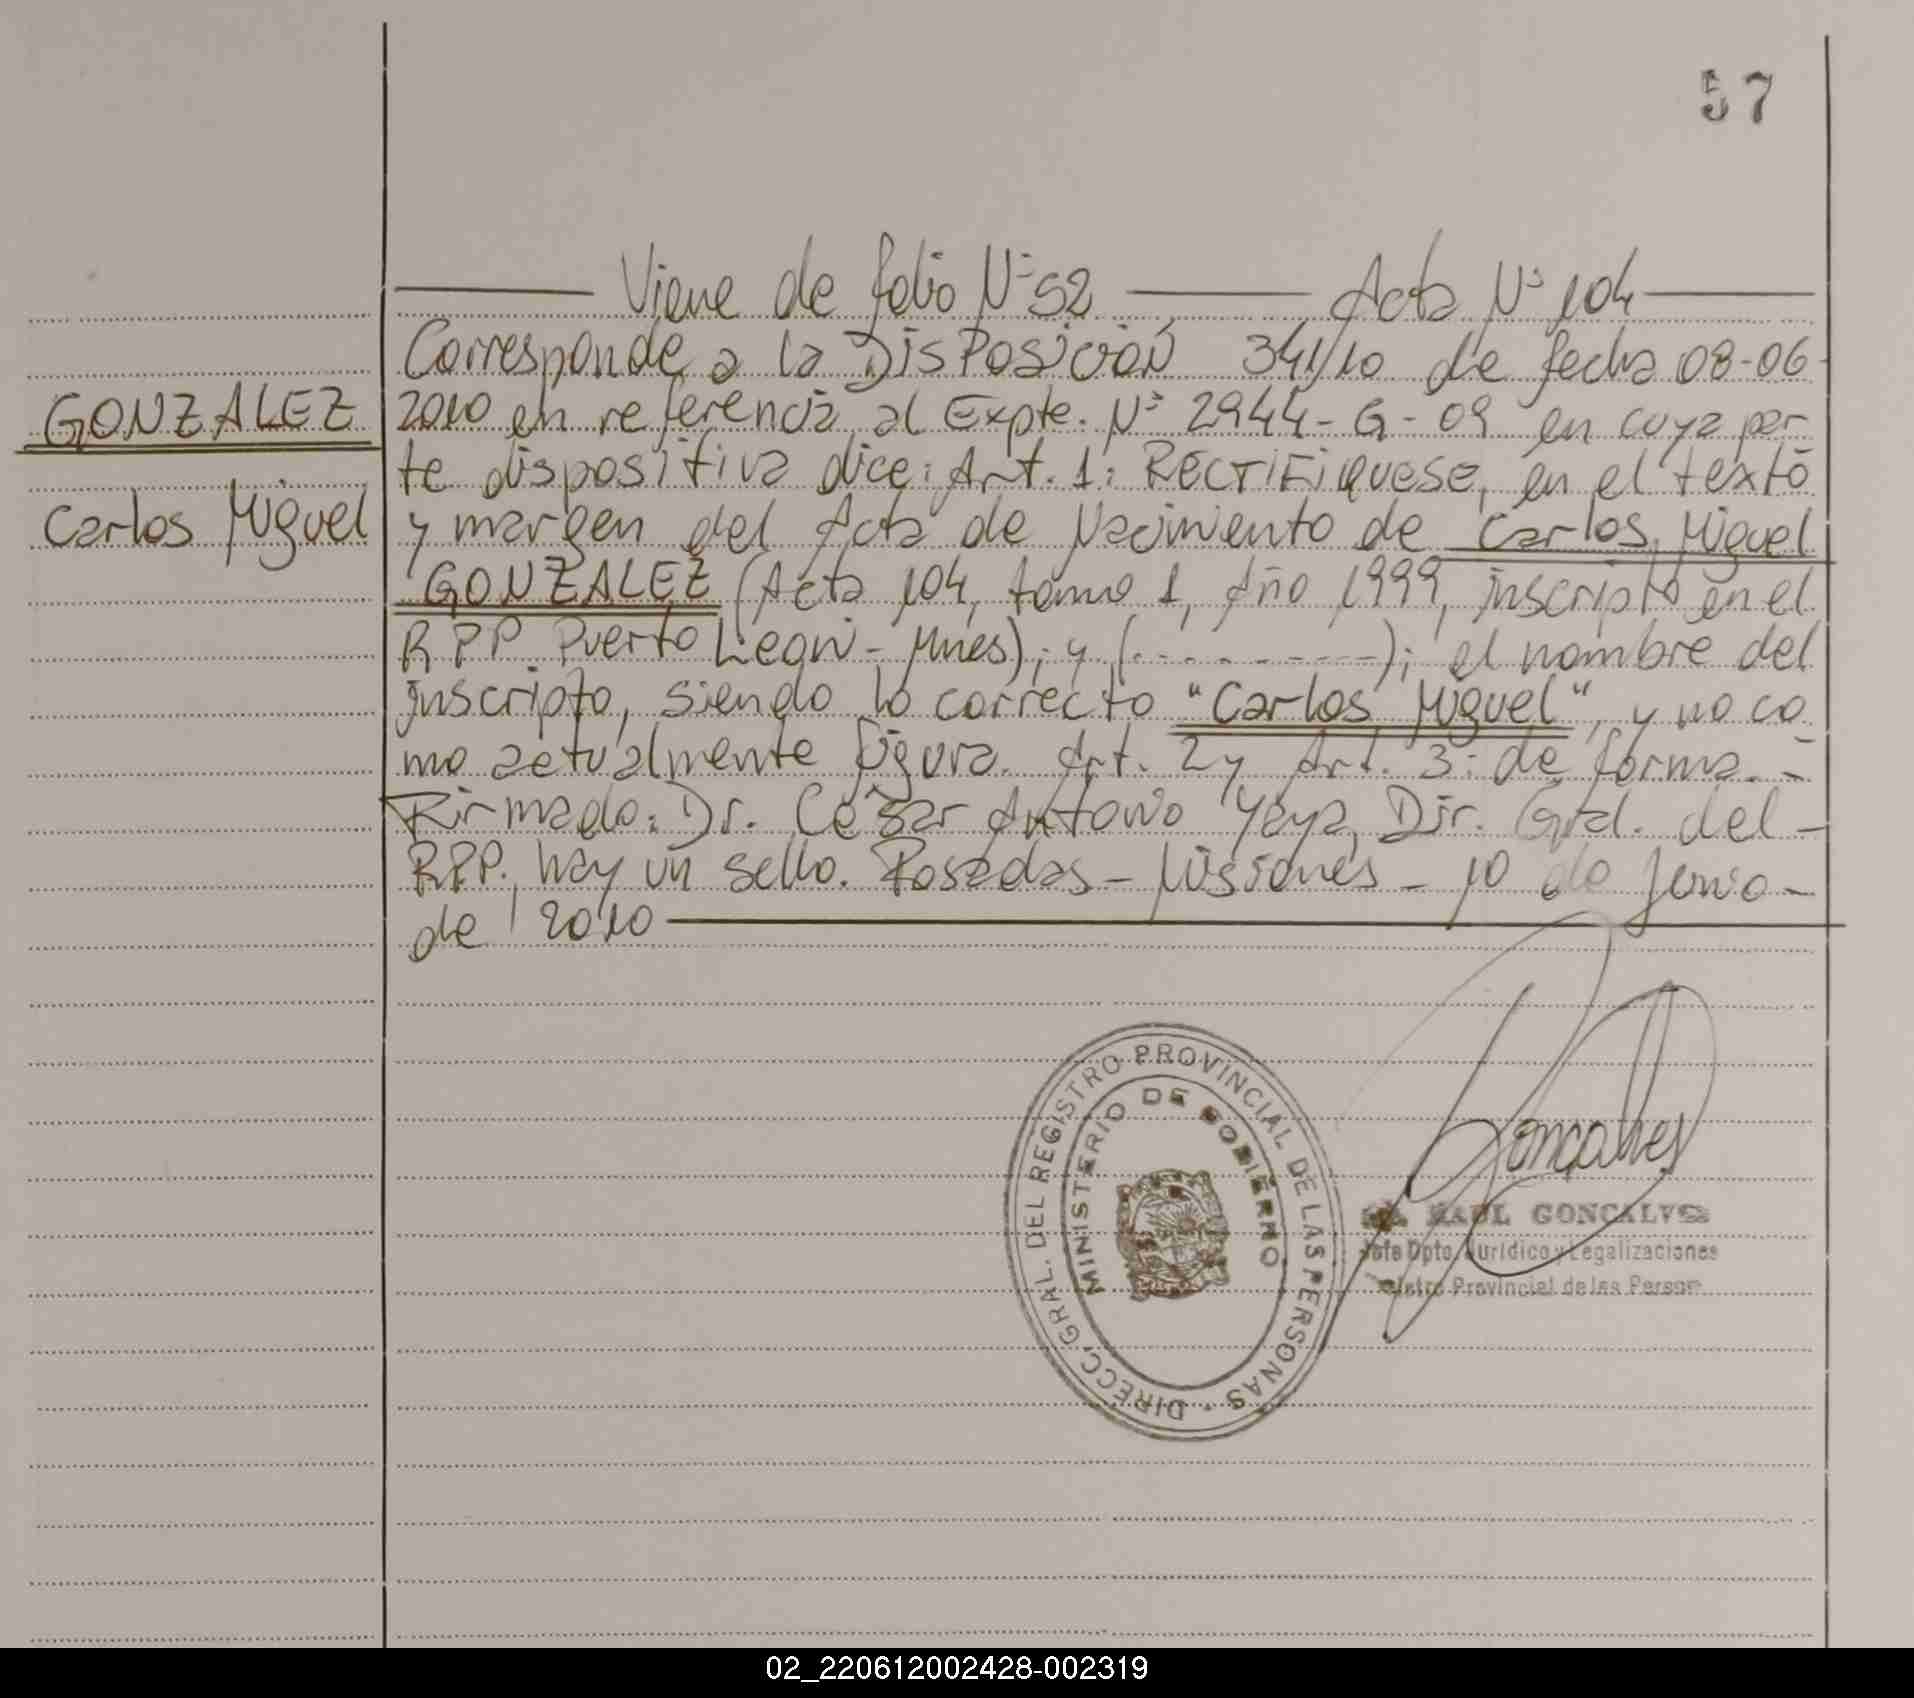 57
Viene de folio Nº 52 Acta Nº 104
Corresponde a la Disposición 341/10 de fecha 08-06-
GONZALEZ
2010 en referencia al Expte. Nº 2944-G-09 en cuya par
te dispositiva dice: Art. 1: RECTIFIQUESE, en el texto
Carlos Miguel
y margen del Acta de Nacimiento de Carlos Miguel
GONZALEZ (Acta 104, tomo 1, Año 1999, inscripto en el
RPP. Puerto Leoni - Mnes); y (----------); el nombre del
inscripto, siendo lo correcto "Carlos Miguel", y no co
mo actualmente figura. Art. 2 y Art. 3: de forma.-
Firmado: Dr. César Antonio Yaya, Dir. Gral. del -
RPP. hay un sello. Posadas - Misiones - 10 de Junio -
de 2010
DIRECC. GRAL. DEL REGISTRO PROVINCIAL DE LAS PERSONAS
MINISTERIO DE GOBIERNO
Goncalves
RAUL GONCALVES
Jefe Dpto. Jurídico y Legalizaciones
Provincial de las
02_220612002428-002319